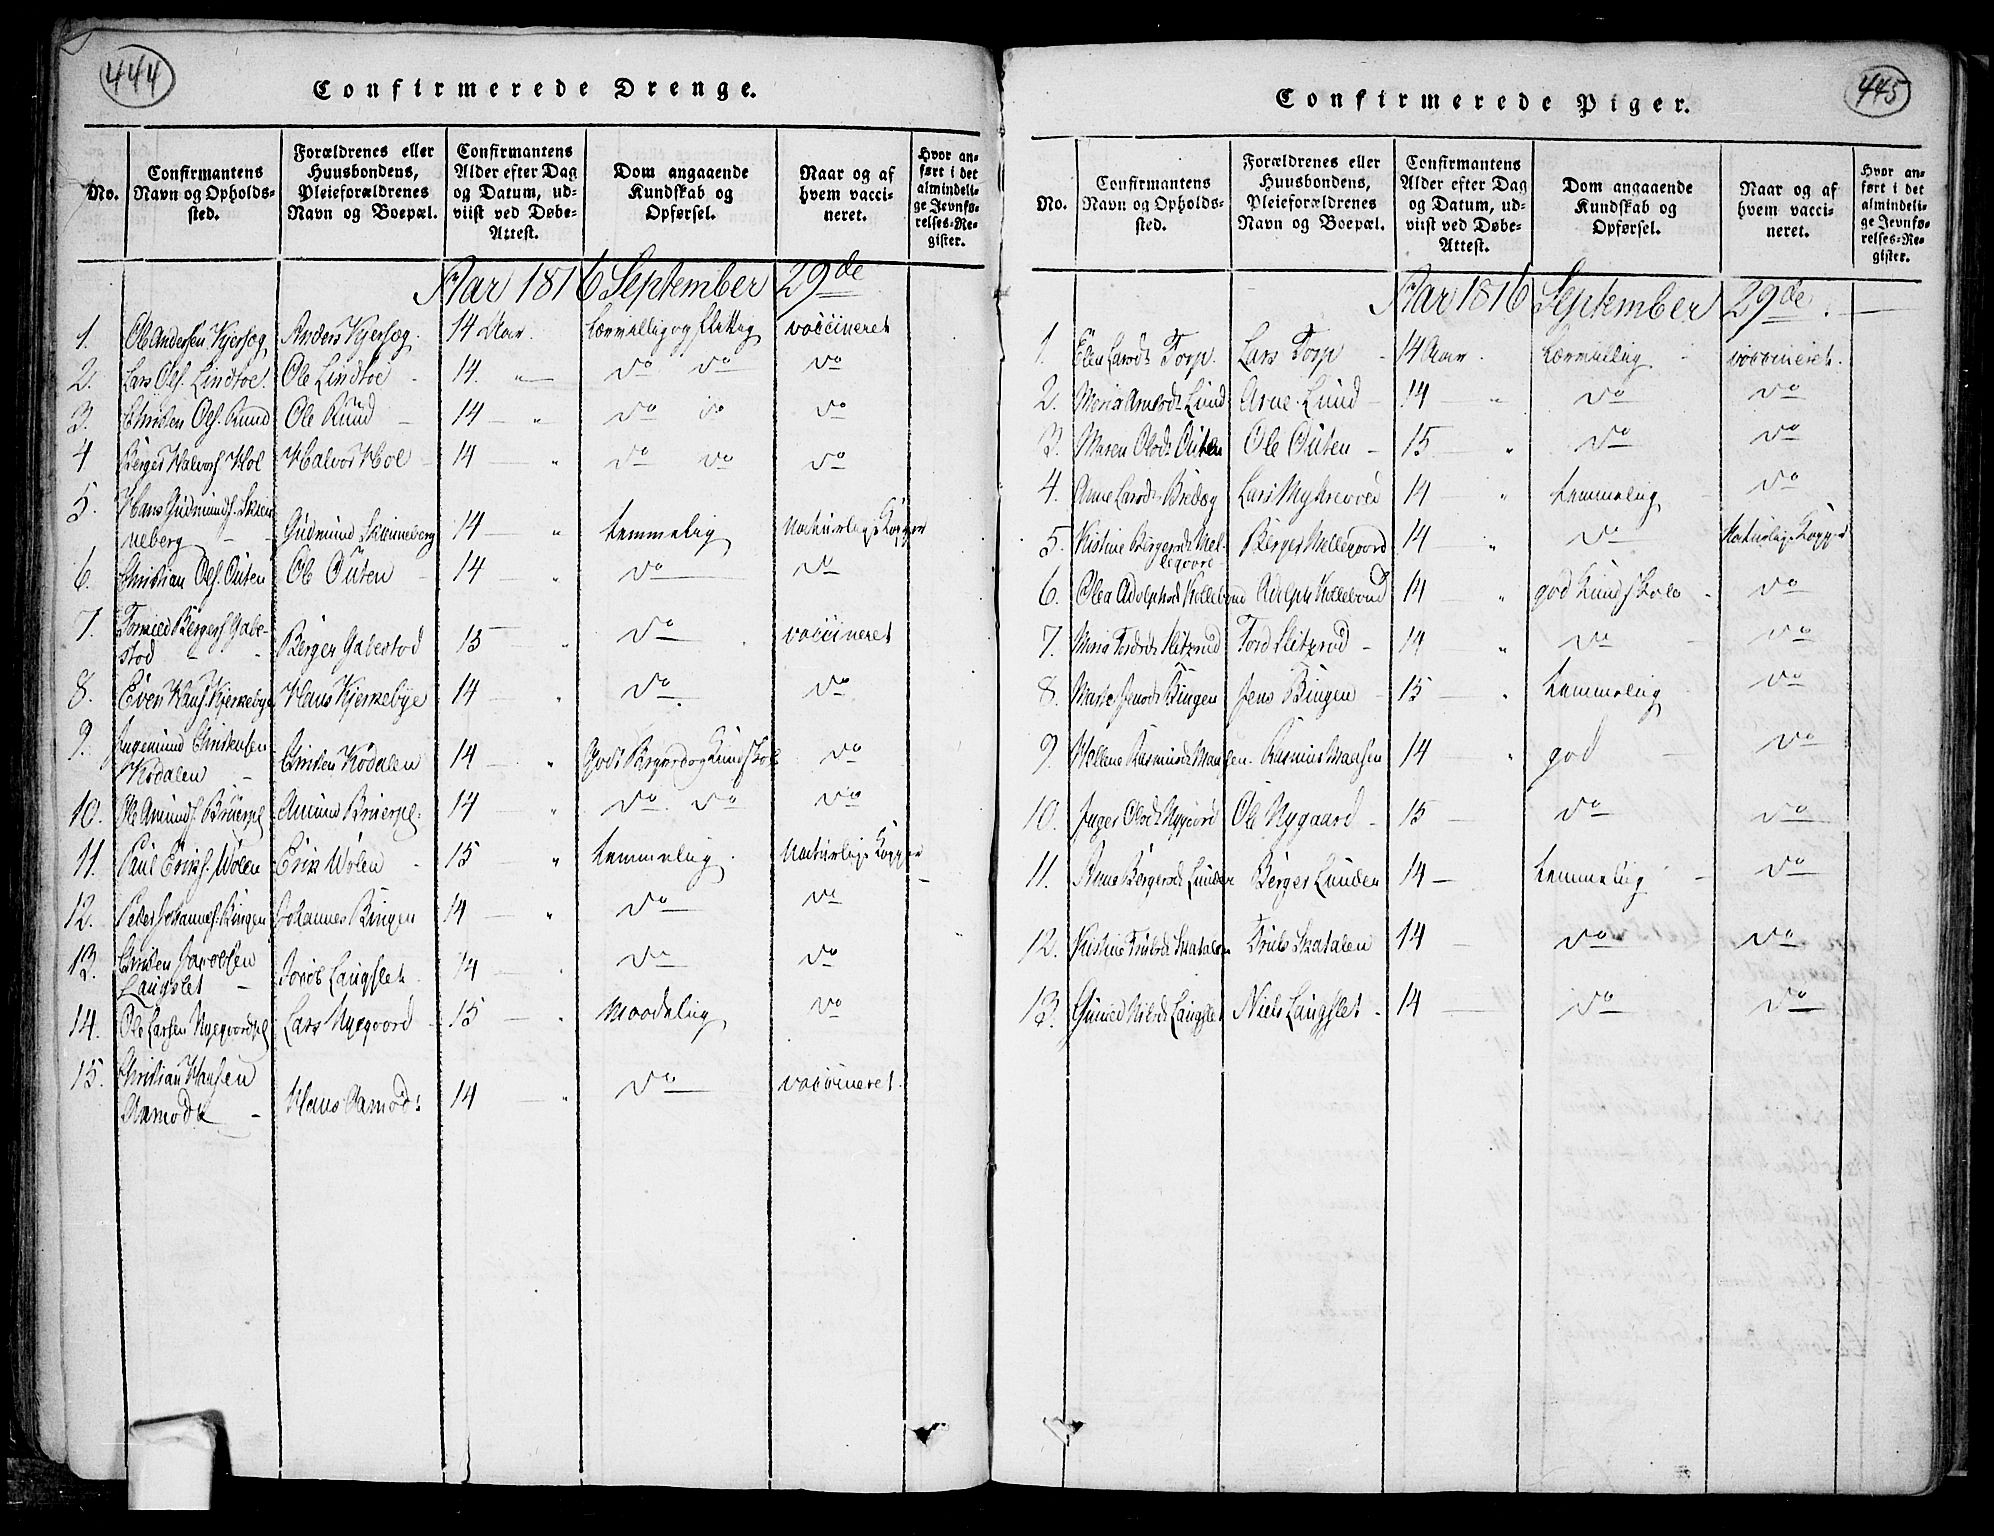 444
Confirmerede Drenge.
No.
Confirmantens Navn og Opholds-sted.
Forældrenes eller Huusbondens, Pleieforældrenes Navn og Boepæl.
Confirmantens Alder efter Dag og Datum, ud-viist ved Døbe-Attest.
Dom angaaende Kundskab og Opførsel.
Naar og af hvem vacci-neret.
Hvor an-ført i det almindeli-ge Jevnfø-relses-Re-gister.
Aar 1816 September 29de
1. Ole Andersen Kjersøg Anders Kjersøg 14 Aar. Lærvillig og flittig vaccineret
2. Lars Ols. Lindtoe. Ole Lindtoe 14. " do do do
3. Christen Ols. Rund Ole Rund 14 " do do do
4 Berger Halvors. Hol Halvor Hol 14 " do do do
5. Hans Gudmunds. Skien-
neberg Gudmund Skienneberg 14 " temmelig Naturlige Kopper
6. Christian Ols. Outen Ole Outen 14 " do do
7. Tormoed Bergers. Gabe-
stad Berger Gabestad 15 " do vaccineret
8. Even Hans. Kjerkebye Hans Kjerkebye 14 " do do
9. Ingemund Christensen
Kodalen Christen Kodalen 14 " Godt Begreb og Kundskab do
10. Ole Amunds. Bruerpl Amund Bruerpl: 14 " do do do
11. Paul Eriks. Wølen Erik Wølen 15 " temmelig. Naturlige Kopper
12. Peter Johannes. Bingen Johannes Bingen 14 " do do
13. Christen Jacobsen
Langslet Jacob Langslet 14 do do
14. Ole Larsen Nyegaardpl Lars Nyegaard 15 " Maadelig do
15. Christian Hansen
Aamodt Hans Aamodt 14 " do vaccineret.
445
Confirmerede Piger.
No.
Confirmantens Navn og Opholds-sted.
Forældrenes eller Huusbondens, Pleieforældrenes Navn og Boepæl.
Confirmantens Alder efter Dag og Datum, ud-viist ved Døbe-Attest.
Dom angaaende Kundskab og Opførsel.
Naar og af hvem vacci-neret.
Hvor an-ført i det almindeli-ge Jevnfø-relses-Re-gister.
Aar 1816 September 29de.
1. Elen Larsdt Torp. Lars Torp 14 Aar. Lærvillig vaccineret.
2. Maria Arnesdt Lund Arne Lund 14 " do do
3. Maren Olsdt Outen Ole Outen 15 " do do
4. Anne Larsdt Lars 14 " temmelig do
5. Kistine Bergersdt Mel-
legaard Berger Mellegaard 14 " do Naturlige Kopper
6. Olea Adolphsdt Kollebund Adolph Kollebund 14 " god Kundskab do
7. Maria Tordsdt Slitxrud Tord Slitxrud 14 " do do
8. Marte Jensdt Bingen Jens Bingen 15 " temmelig do
9. Hellene Rasmusdt Maasen Rasmus Maasen 14 " god do
10. Inger Olsdt Nygaard Ole Nygaard 15 do do
11. Anne Bergersdt Lunden Berger Lunden 14 temmelig do
12. Kistine Trulsdt Skatalen Truls Skatalen 14 do do
13. Gunild Nielsdt Langslet Niels Langslet 14 do do